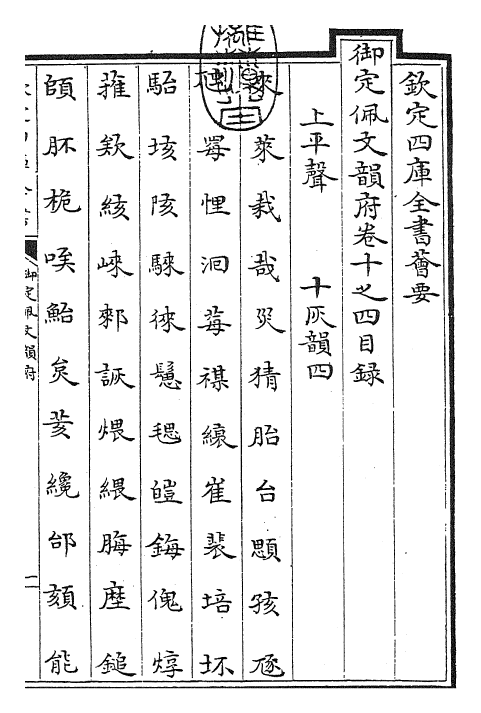 欽定四庫全書薈要
御定佩文韻府卷十之四目録
上平聲　十灰韻四
來萊栽哉災猜胎台顋孩豗
虺罞悝洄莓禖縗崔裴培坏
駘垓陔騋徠毸毢皚鋂傀焞
蓷欸絯崍郲詼煨緦脢塺鎚
頧肧桅唉鮐炱荄纔邰頦能
御定佩文韻府